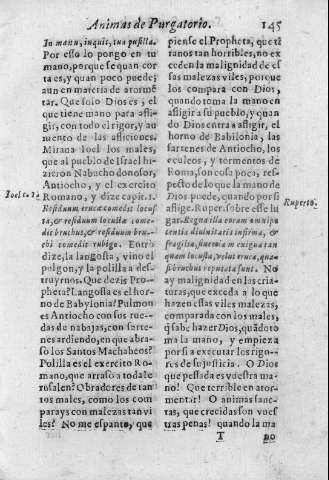 Animas de Purgatorio. 145
In manu, inquit, tua pusilla.
Por esso lo pongo en tu
mano, porque se quan cor
ta es, y quan poco puede;
aun en materia de atormẽ
tar. Que solo Dios es, el
que tiene mano para afli-
gir, con todo el rigor, y au
mento de las afliciones.
Mirana Ioel los males,
que al pueblo de Israel hi-
zieron Nabucho donosor,
Antiocho, y el exercito
Romano, y dize capit. 1.
Residuum eruca comedit locus
ta, & residuum locusta come-
dit bruchus, & residuum bru-
chi comedit rubigo. Entrò
dize, la langosta, vino el
pulgon, y la polilla a des-
truyrnos. Que dezis Pro-
pheta? Langosta es el hor-
no de Babylonia? Pulmon
es Antiocho con sus rue-
das de nabajas, con sarte-
nes ardiendo, en que abra-
so los Santos Machabeos?
Polilla es el exercito Ro-
mano, que arrasò a toda Ie
rusalen? Obradores de tan
tos males, como los com
parays con malezas tan vi
les? No me espanto, que
Ioel c. 1.
piense el Propheta, que tì
ranos tan horribles, no ex
ceden la malignidad de es
sas malezas viles, porque
los compara con Dios,
quando toma la mano en
afligir a su pueblo, y quan
do Dios entra a afligir, el
horno de Babilonia, las
sartenes de Antiocho, los
eculeos, y tormentos de
Roma, son cosa poca, res-
pecto de lo que la mano de
Dios puede, quando por si
aflige. Ruper. sobre este lu
gar. Regna illa coram omnipo
tentis diuinitatis infirma, &
fragilia, siue etiam exigua tan
quam locusta, velut eruca, qua
si bruchus reputata sunt. No
ay malignidad en las cria-
turas, que exceda a lo que
hazen estas viles malezas,
comparada con los males,
q̃ sabe hazer Dios, quãdo to
ma la mano, y empieza
por si a executar los rigo-
res de su justicia. O Dios
que pessada es vuestra ma-
no! Que terrible en ator-
mentar! O animas sanc-
tas, que crecidas son vues
tras penas! quando la ma
Ruperto.
T no